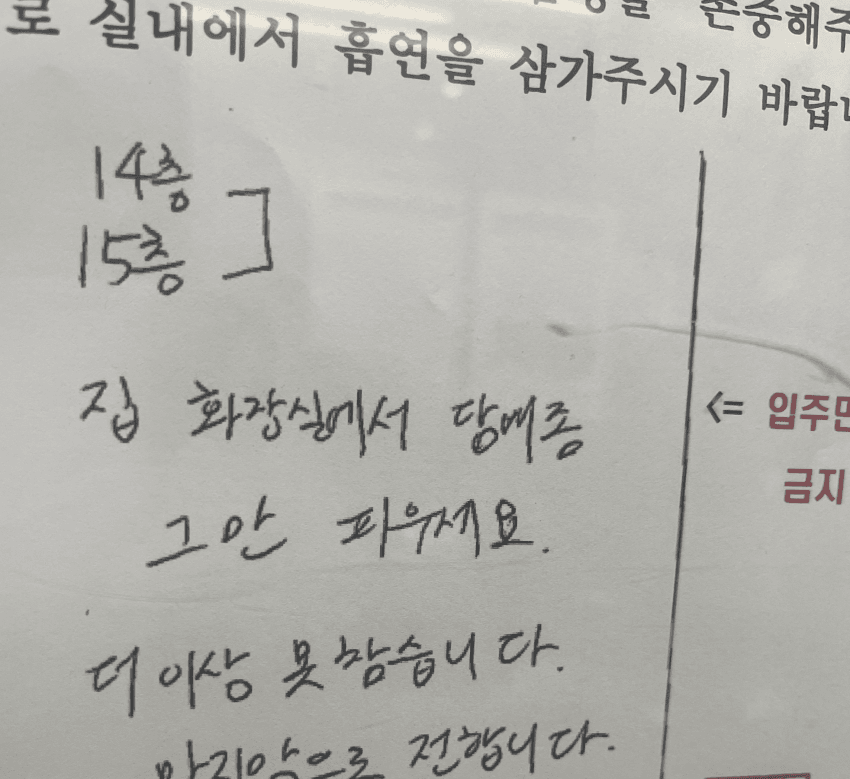 존중해주
로 실내에서 흡연을 삼가주시기 바랍니
14층
15층
집 화장실에서 담배좀
그만 피우세요.
<= 입주민
금지
더 이상 못 참습니다.
마지막으로 전합니다.